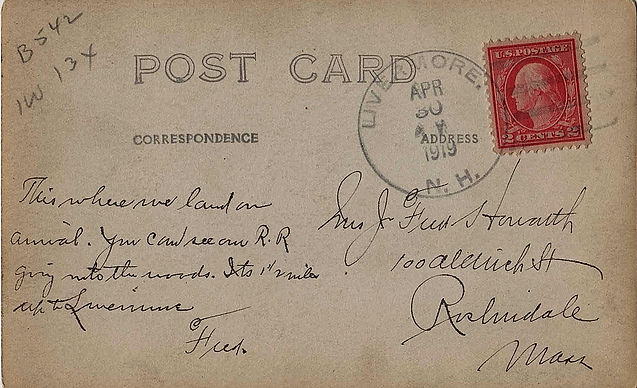 B542
134
POST CARD
LIVERMORE.
APR
30
1919
N. H.
U.S. POSTAGE
2 CENTS 2
CORRESPONDENCE
ADDRESS
This where we land on
arrival. You can see our R.R
going into the woods. Its 1½ miles
up to Livermore
Fred.
Mrs J. Fred Howarth
100 Aldrich St
Roslindale
Mass